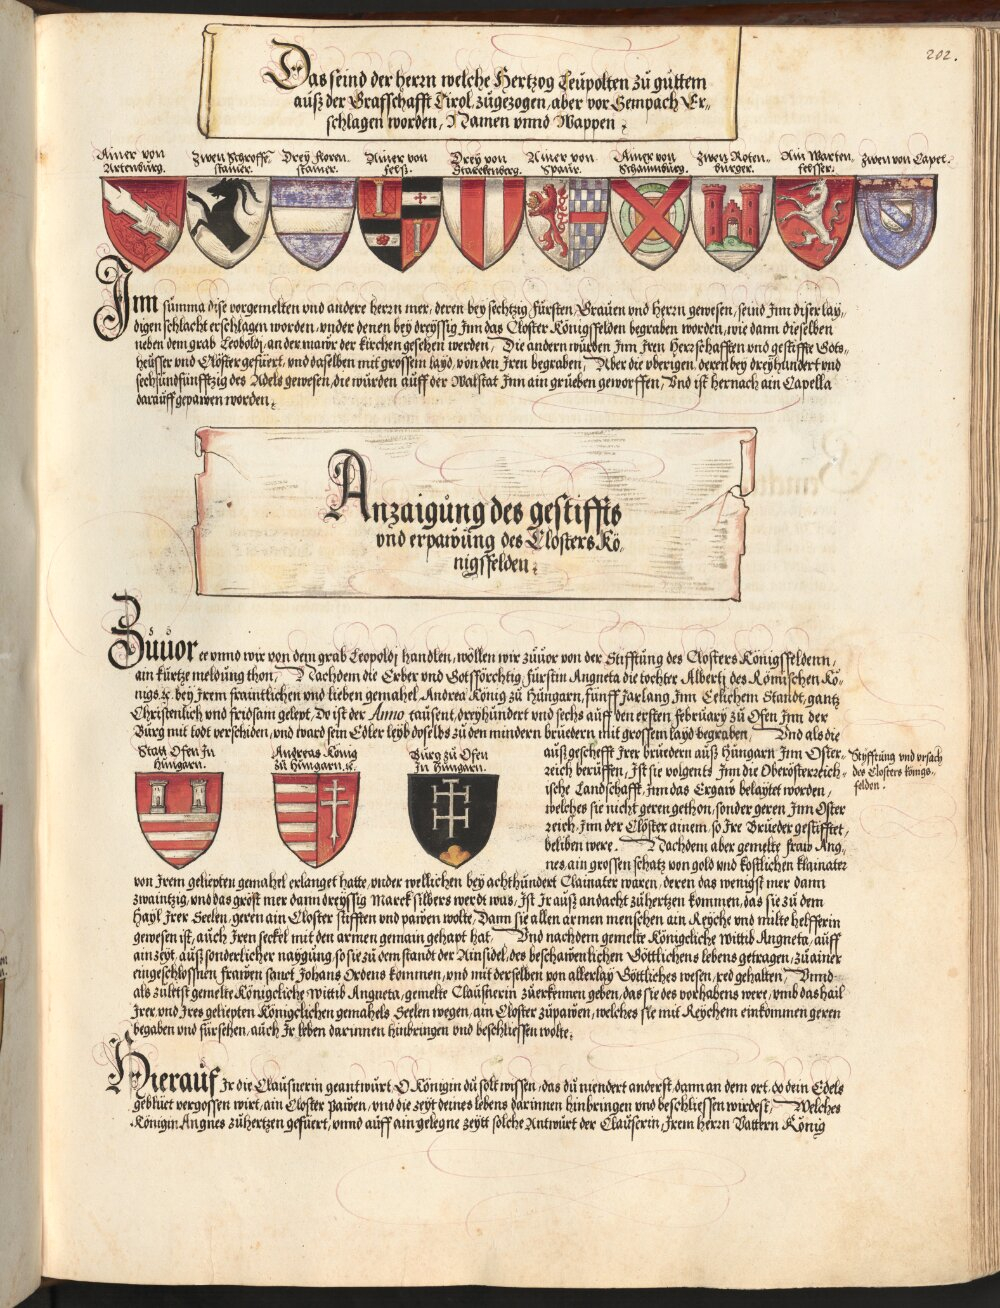 202.
Das seind der herrn welche Hertzog Leupolten zu guttem
auß der Graffschafft Tirol, zugezogen, aber vor Sempach Er-
schlagen worden, Namen vnnd Wappen.
Ainer von
Artenburg.
Zwen Schroffe-
stainer.
Drey Koren-
stainer.
Ainer von
felß.
Drey von
Starckenberg.
Ainer von
Spaur.
Ainer von
Schaumburg.
Zwen Roten-
burger.
Ain Warten-
felßer.
Zwen von Capel.
Inn summa dise vorgemelten vnd andere herrn mer, deren bey sechtzig Fürsten, Grauen vnd Herrn gewesen, seind Inn diser lay-
digen schlacht erschlagen worden, vnder denen bey dreyssig Inn das Closter Königsfelden begraben worden, wie dann dieselben
neben dem grab Leopoldj, an der maur der kirchen gesehen werden, Die andern wurden Inn Iren Herrschafften vnd gestiffte Gots-
heüser vnd Clöster gefuert, vnd daselben mit grossem layd, von den Iren begraben, Aber die vberigen, deren bey dreyhundert vnd
sechsundfunfftzig des Adels gewesen, die wurden auff der Walstat Inn ain grueben geworffen, Vnd ist hernach ain Capella
darauff gepawen worden.
Anzaigung des gestiffts
vnd erpawung des Closters Kö-
nigsfelden.
Zuuor ee vnnd wir von dem grab Leopoldj handlen, wöllen wir zuuor von der Stifftung des Closters Königsfeldenn,
ain kurtze meldung thon, Nachdem die Erber vnd Gotsförchtig Fürstin Angneta die tochter Albertj des Römischen Kö-
nigs ꝛc. bey Irem fraintlichen vnd lieben gemahel Andrea König zu Hungarn, funff Jarlang Inn Eelichem Standt, gantz
Christenlich vnd fridsam gelept, Do ist der Anno tausent, dreyhundert vnd sechs auff den ersten february zu Ofen Inn der
Burg mit todt verschiden, vnd ward sein Edler leyb doselbs zu den mindern bruedern mit grossem layd begraben, Vnd als die
Statt Ofen In
Hungarn.
Andreas König
zu Hungarn ꝛc.
Burg zu Ofen
In Hungarn.
auß geschefft Irer bruedern auß Hungarn Inn Oster-
reich beruffen, Ist sie volgents Inn die Oberösterreich-
ische Landschafft, Inn das Ergaw belaytet worden,
welches sie nicht geren gethon, sonder geren Inn Oster
reich Inn der Clöster ainem, so Ire Brüeder gestifftet,
beliben were. Nachdem aber gemelte fraw Ang-
nes, ain grossen schatz von gold vnd kostlichen klainater
Styfftung vnd vrsach
des Closters Königs-
felden.
von Irem geliepten gemahel erlanget hatte, vnder wellichen bey achthundert Clainater waren, deren das wenigst mer dann
zwaintzig, vnd das gröst mer dann dreyssig Marck silbers werdt was, Ist Ir auß andacht zu hertzen kommen, das sie zu dem
hayl Irer Seelen, geren ain Closter stifften vnd pawen wolte, Dann sie allen armen menschen ain Reyche vnd milte helfferin
gewesen ist, auch Iren seckel mit den armen gemain gehapt hat, Vnd nachdem gemelte Königcliche Wittib Angneta, auff
ain zeyt, auß sonderlicher naygung, so sie zu dem standt der Ainsidel, des beschawenlichen Göttlichens lebens getragen, zu ainer
eingeschlossnen frawen sanct Johans Ordens kommen, vnd mit derselben von allerlay Göttliches wesen, red gehalten, Vnnd
als zuletst gemelte Königcliche Wittib Angneta, gemelte Clausnerin zu erkennen geben, das sie des vorhabens were, vmb das hail
Irer vnd Ires geliepten Königclichen gemahels Seelen wegen, ain Closter zupawen, welches sie mit Reychem einkommen geren
begaben vnd fürsehen, auch Ir leben darinnen hinbringen vnd beschliessen wolte.
Hierauf Ir die Clausnerin geantwurt, O Königin du solt wissen, das du niendert anderst, dann an dem ort, do dein Edels
gebluet vergossen wirt, ain Closter pawen, vnd die zeyt deines lebens darinnen hinbringen vnd beschliessen wirdest, Welches
Königin Angnes zu hertzen gefuert, vnnd auff ain gelegne zeytt solche Antwurt der Clauserin, Irem herrn Vattern König